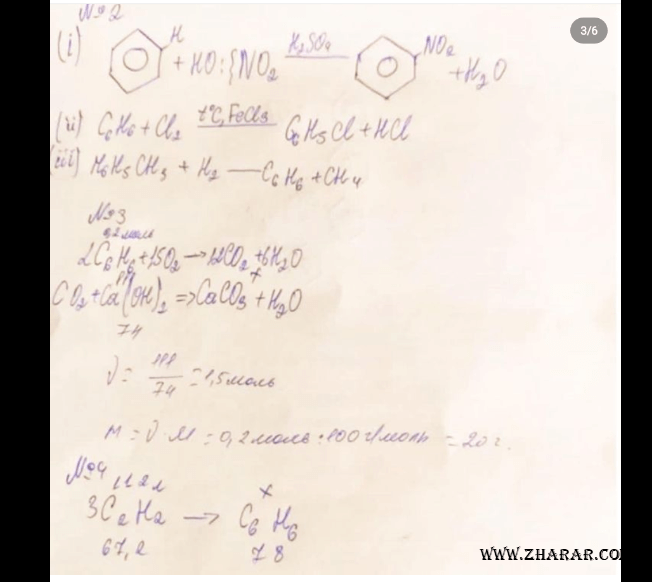 №2
3/6
(i) H + HO:{NO2 H2SO4 NO2 + H2O
(ii) C6H6 + Cl2 t°C, FeCl3 C6H5Cl + HCl
(iii) C6H5CH3 + H2 — C6H6 + CH4
№3
0,2 моль
2C6H6 + 15O2 → 12CO2 + 6H2O
111 x
CO2 + Ca(OH)2 => CaCO3 + H2O
74
ν = 111/74 = 1,5 моль
m = ν · M = 0,2 моль · 100 г/моль = 20 г.
№4
11,2 л x
3C2H2 → C6H6
67,2 78
WWW.ZHARAR.COM